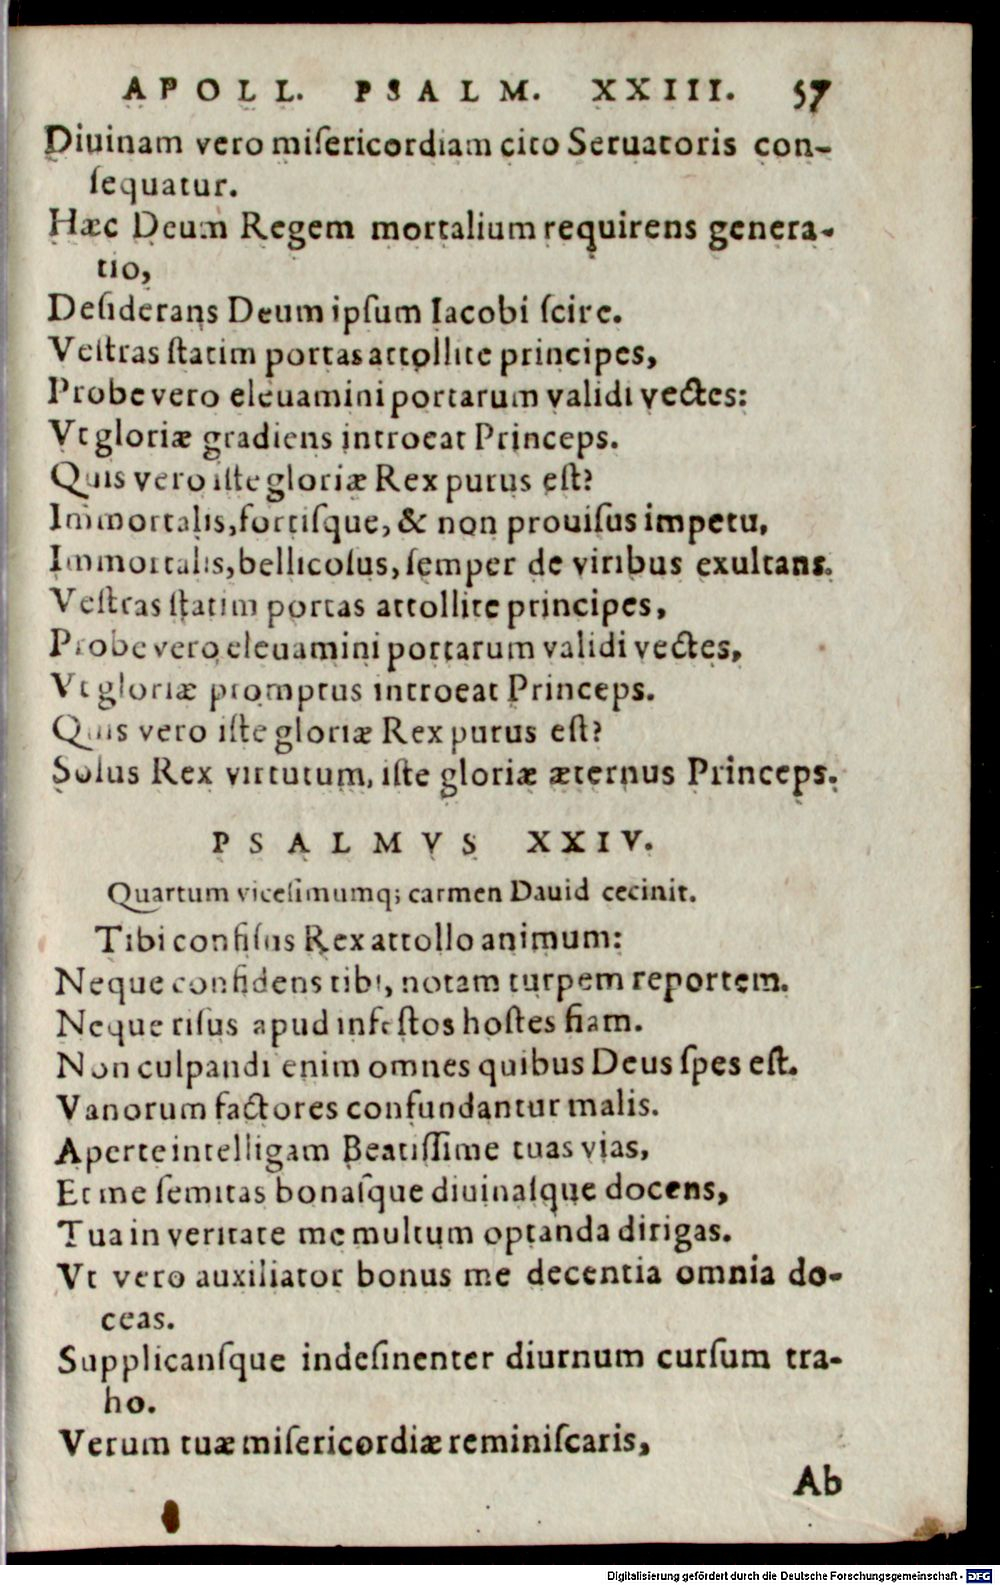 APOLL. PSALM. XXIII. 57
Diuinam vero miſericordiam cito Seruatoris con-
ſequatur.
Hæc Deum Regem mortalium requirens genera-
tio,
Deſiderans Deum ipſum Iacobi ſcire.
Veſtras ſtatim portas attollite principes,
Probe vero eleuamini portarum validi vectes:
Vt gloriæ gradiens introeat Princeps.
Quis vero iſte gloriæ Rex purus eſt?
Immortalis, fortiſque, & non prouiſus impetu,
Immortalis, bellicoſus, ſemper de viribus exultans.
Veſtras ſtatim portas attollite principes,
Probe vero eleuamini portarum validi vectes,
Vt gloriæ promptus introeat Princeps.
Quis vero iſte gloriæ Rex purus eſt?
Solus Rex virtutum, iſte gloriæ æternus Princeps.
PSALMVS XXIV.
Quartum viceſimumq; carmen Dauid cecinit.
Tibi confiſus Rex attollo animum:
Neque confidens tibi, notam turpem reportem.
Neque riſus apud infeſtos hoſtes fiam.
Non culpandi enim omnes quibus Deus ſpes eſt.
Vanorum factores confundantur malis.
Aperte intelligam Beatiſſime tuas vias,
Et me ſemitas bonaſque diuinaſque docens,
Tua in veritate me multum optanda dirigas.
Vt vero auxiliator bonus me decentia omnia do-
ceas.
Supplicanſque indeſinenter diurnum curſum tra-
ho.
Verum tuæ miſericordiæ reminiſcaris,
Ab
Digitalisierung gefördert durch die Deutsche Forschungsgemeinschaft - DFG